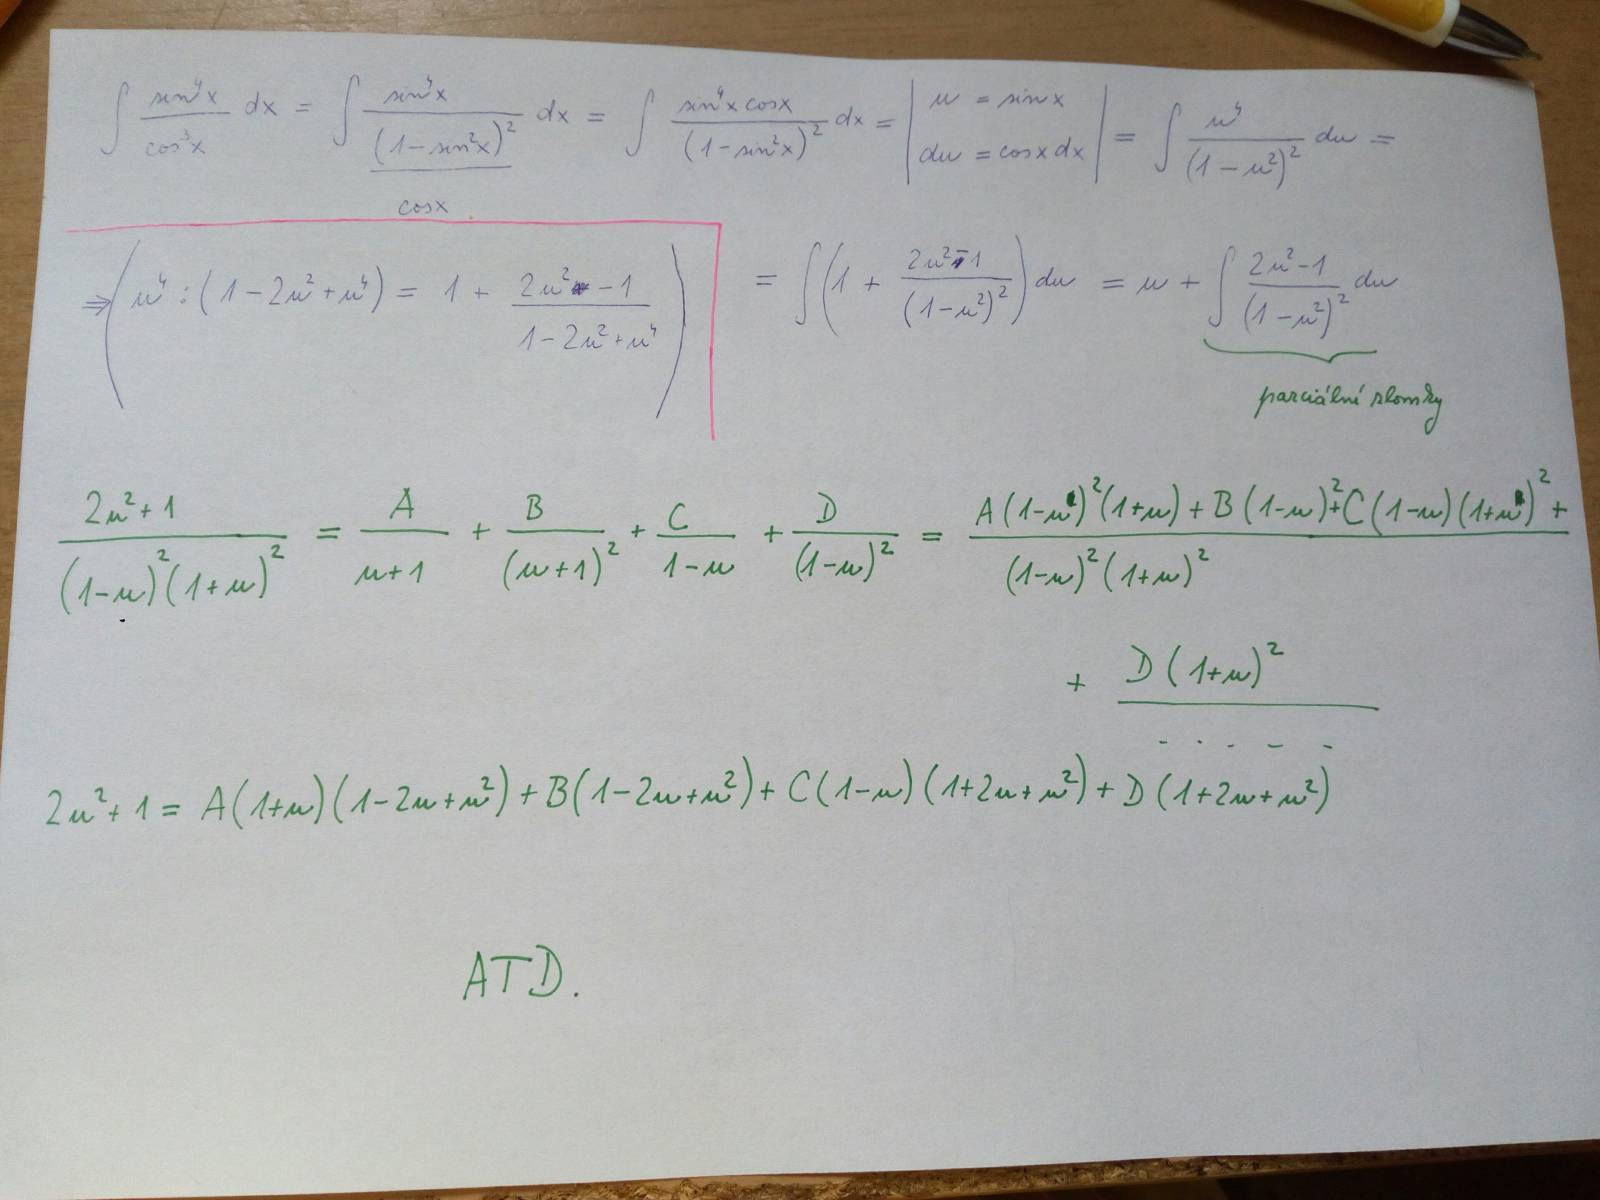 ∫ sin⁴x / cos³x dx = ∫ sin⁴x / ((1-sin²x)² / cosx) dx = ∫ sin⁴x cosx / (1-sin²x)² dx = | u = sinx, du = cosx dx | = ∫ u⁴ / (1-u²)² du =
⇒ (u⁴ : (1-2u²+u⁴) = 1 + (2u²-1) / (1-2u²+u⁴))
= ∫ (1 + (2u²-1) / (1-u²)²) du = u + ∫ (2u²-1) / (1-u²)² du
parciální zlomky
(2u²+1) / ((1-u)²(1+u)²) = A / (u+1) + B / (u+1)² + C / (1-u) + D / (1-u)² = (A(1-u)²(1+u) + B(1-u)²+C(1-u)(1+u)² +) / ((1-u)²(1+u)²)
+ D(1+u)² / .....
2u²+1 = A(1+u)(1-2u+u²)+B(1-2u+u²)+C(1-u)(1+2u+u²)+D(1+2u+u²)
ATD.